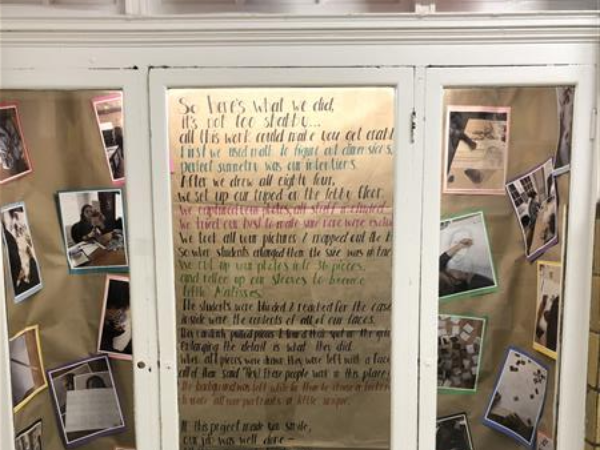 So here's what we did,
it's not too shabby...
all this work could make you get crabby
First we used math to figure out dimensions,
perfect symmetry was our intentions.
After we drew all eighty four,
we set up our tripod on the lobby floor.
We captured your photos, all staff included
We tried our best to make sure none were exclu
We took all your pictures & mapped out the
So when students enlarged them the size was
We cut up our plates into 36 pieces,
and rolled up our sleeves to become
little Matisses.
The students were blinded & reached for the case
inside were the contents of all of our faces.
They carefully pulled pieces & found their spot on the grid
Enlarging the detail is what they did.
When all pieces were drawn they were left with a face
and then said "Hey! these people work in this place
The background was left white
all our portraits a little unique.
If this project made you smile,
our job was well done -